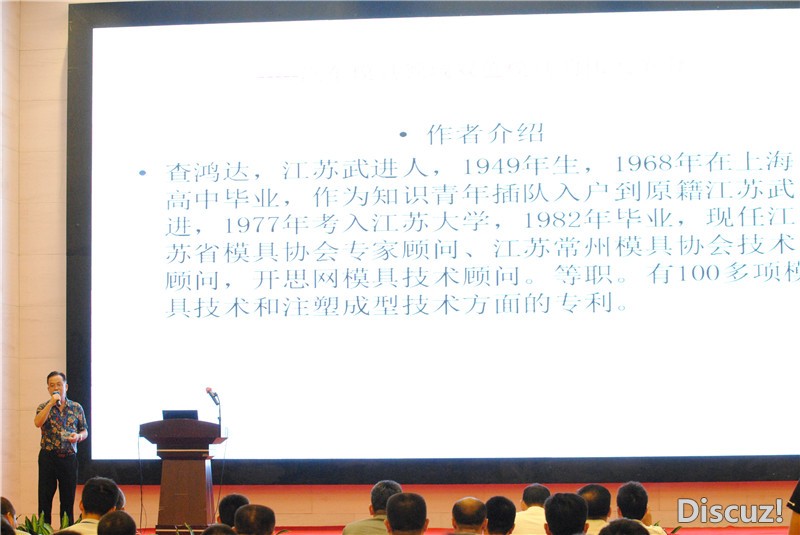 • 作者介绍
• 查鸿达，江苏武进人，1949年生，1968年在上海
高中毕业，作为知识青年插队入户到原籍江苏武
进，1977年考入江苏大学，1982年毕业，现任江
苏省模具协会专家顾问、江苏常州模具协会技术
顾问，开思网模具技术顾问。等职。有100多项模
具技术和注塑成型技术方面的专利。
Discuz!